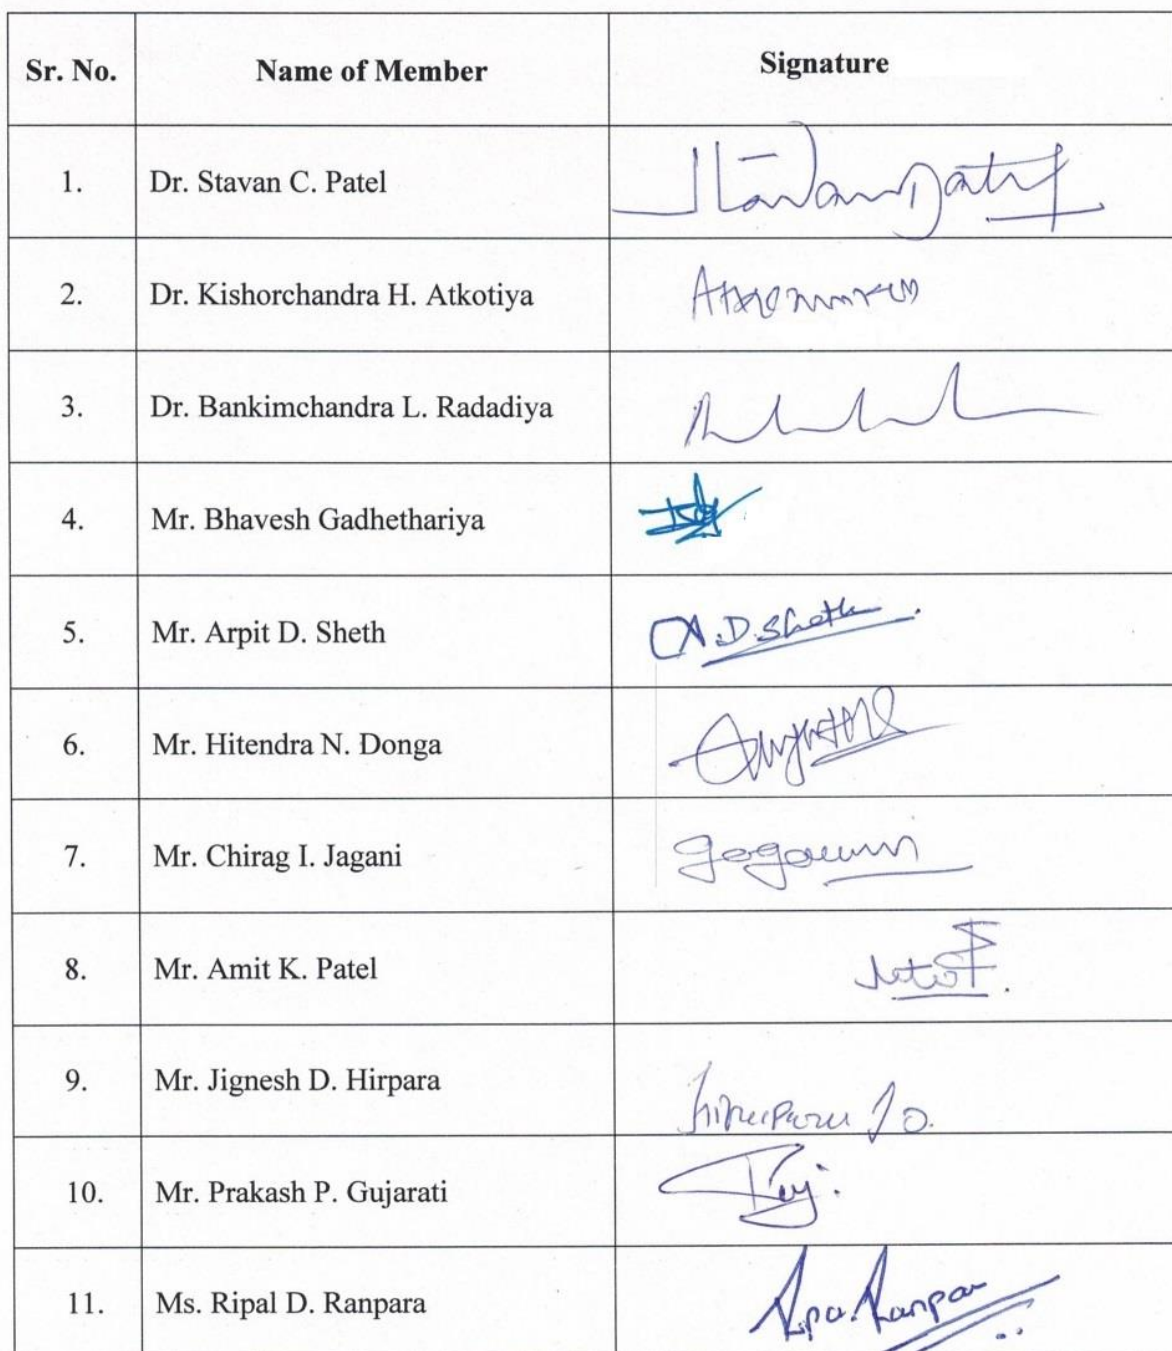 Sr. No. Name of Member Signature
1. Dr. Stavan C. Patel Stavan Patel
2. Dr. Kishorchandra H. Atkotiya
3. Dr. Bankimchandra L. Radadiya
4. Mr. Bhavesh Gadhethariya
5. Mr. Arpit D. Sheth A.D.Sheth
6. Mr. Hitendra N. Donga
7. Mr. Chirag I. Jagani
8. Mr. Amit K. Patel
9. Mr. Jignesh D. Hirpara
10. Mr. Prakash P. Gujarati
11. Ms. Ripal D. Ranpara